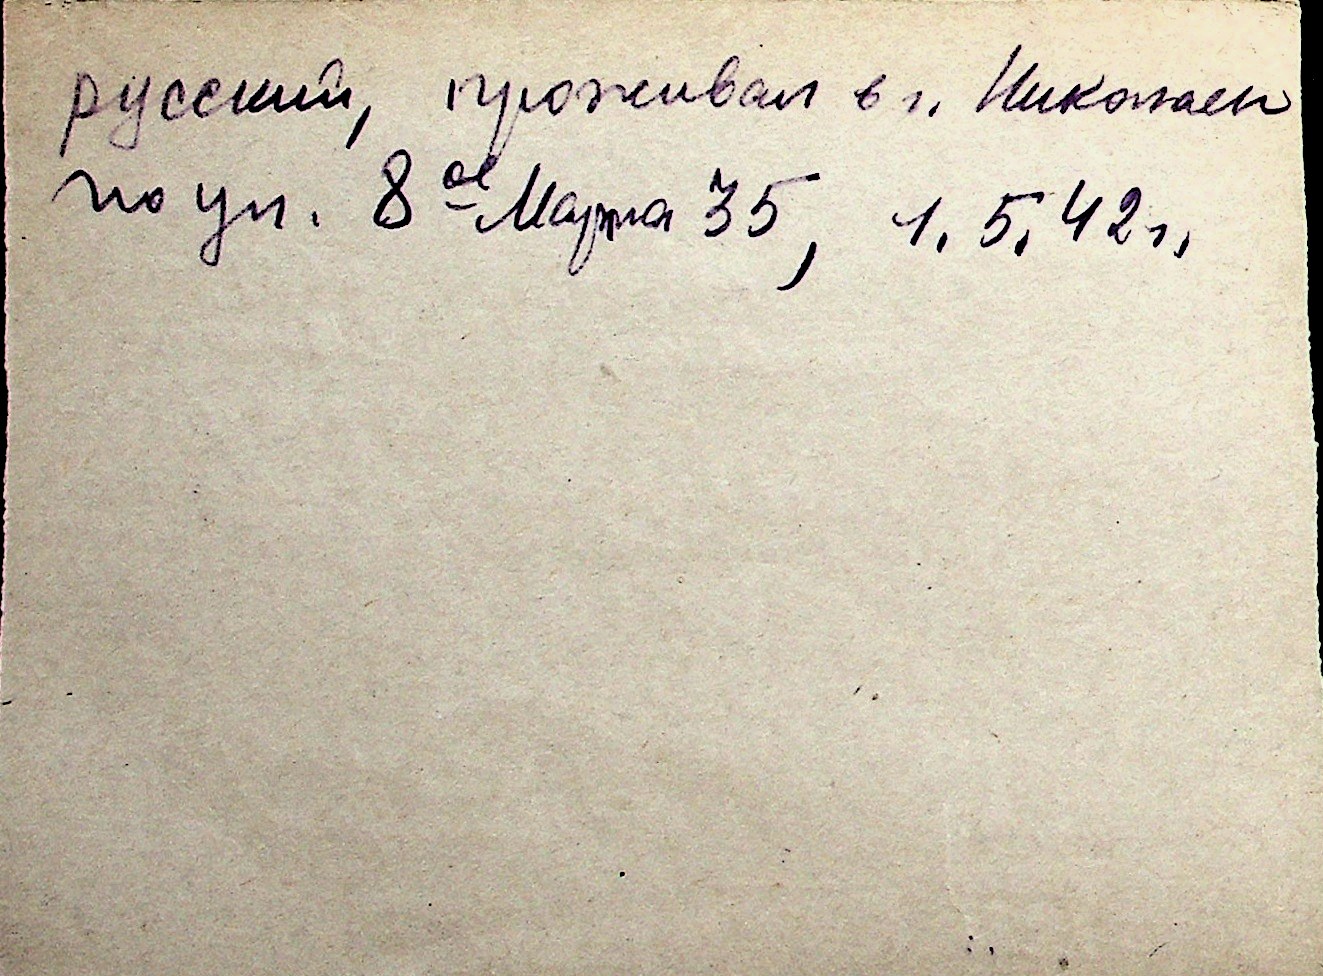 русский, проживал в г. Николаев
по ул. 8ое Марта 35, 1.5.42г.